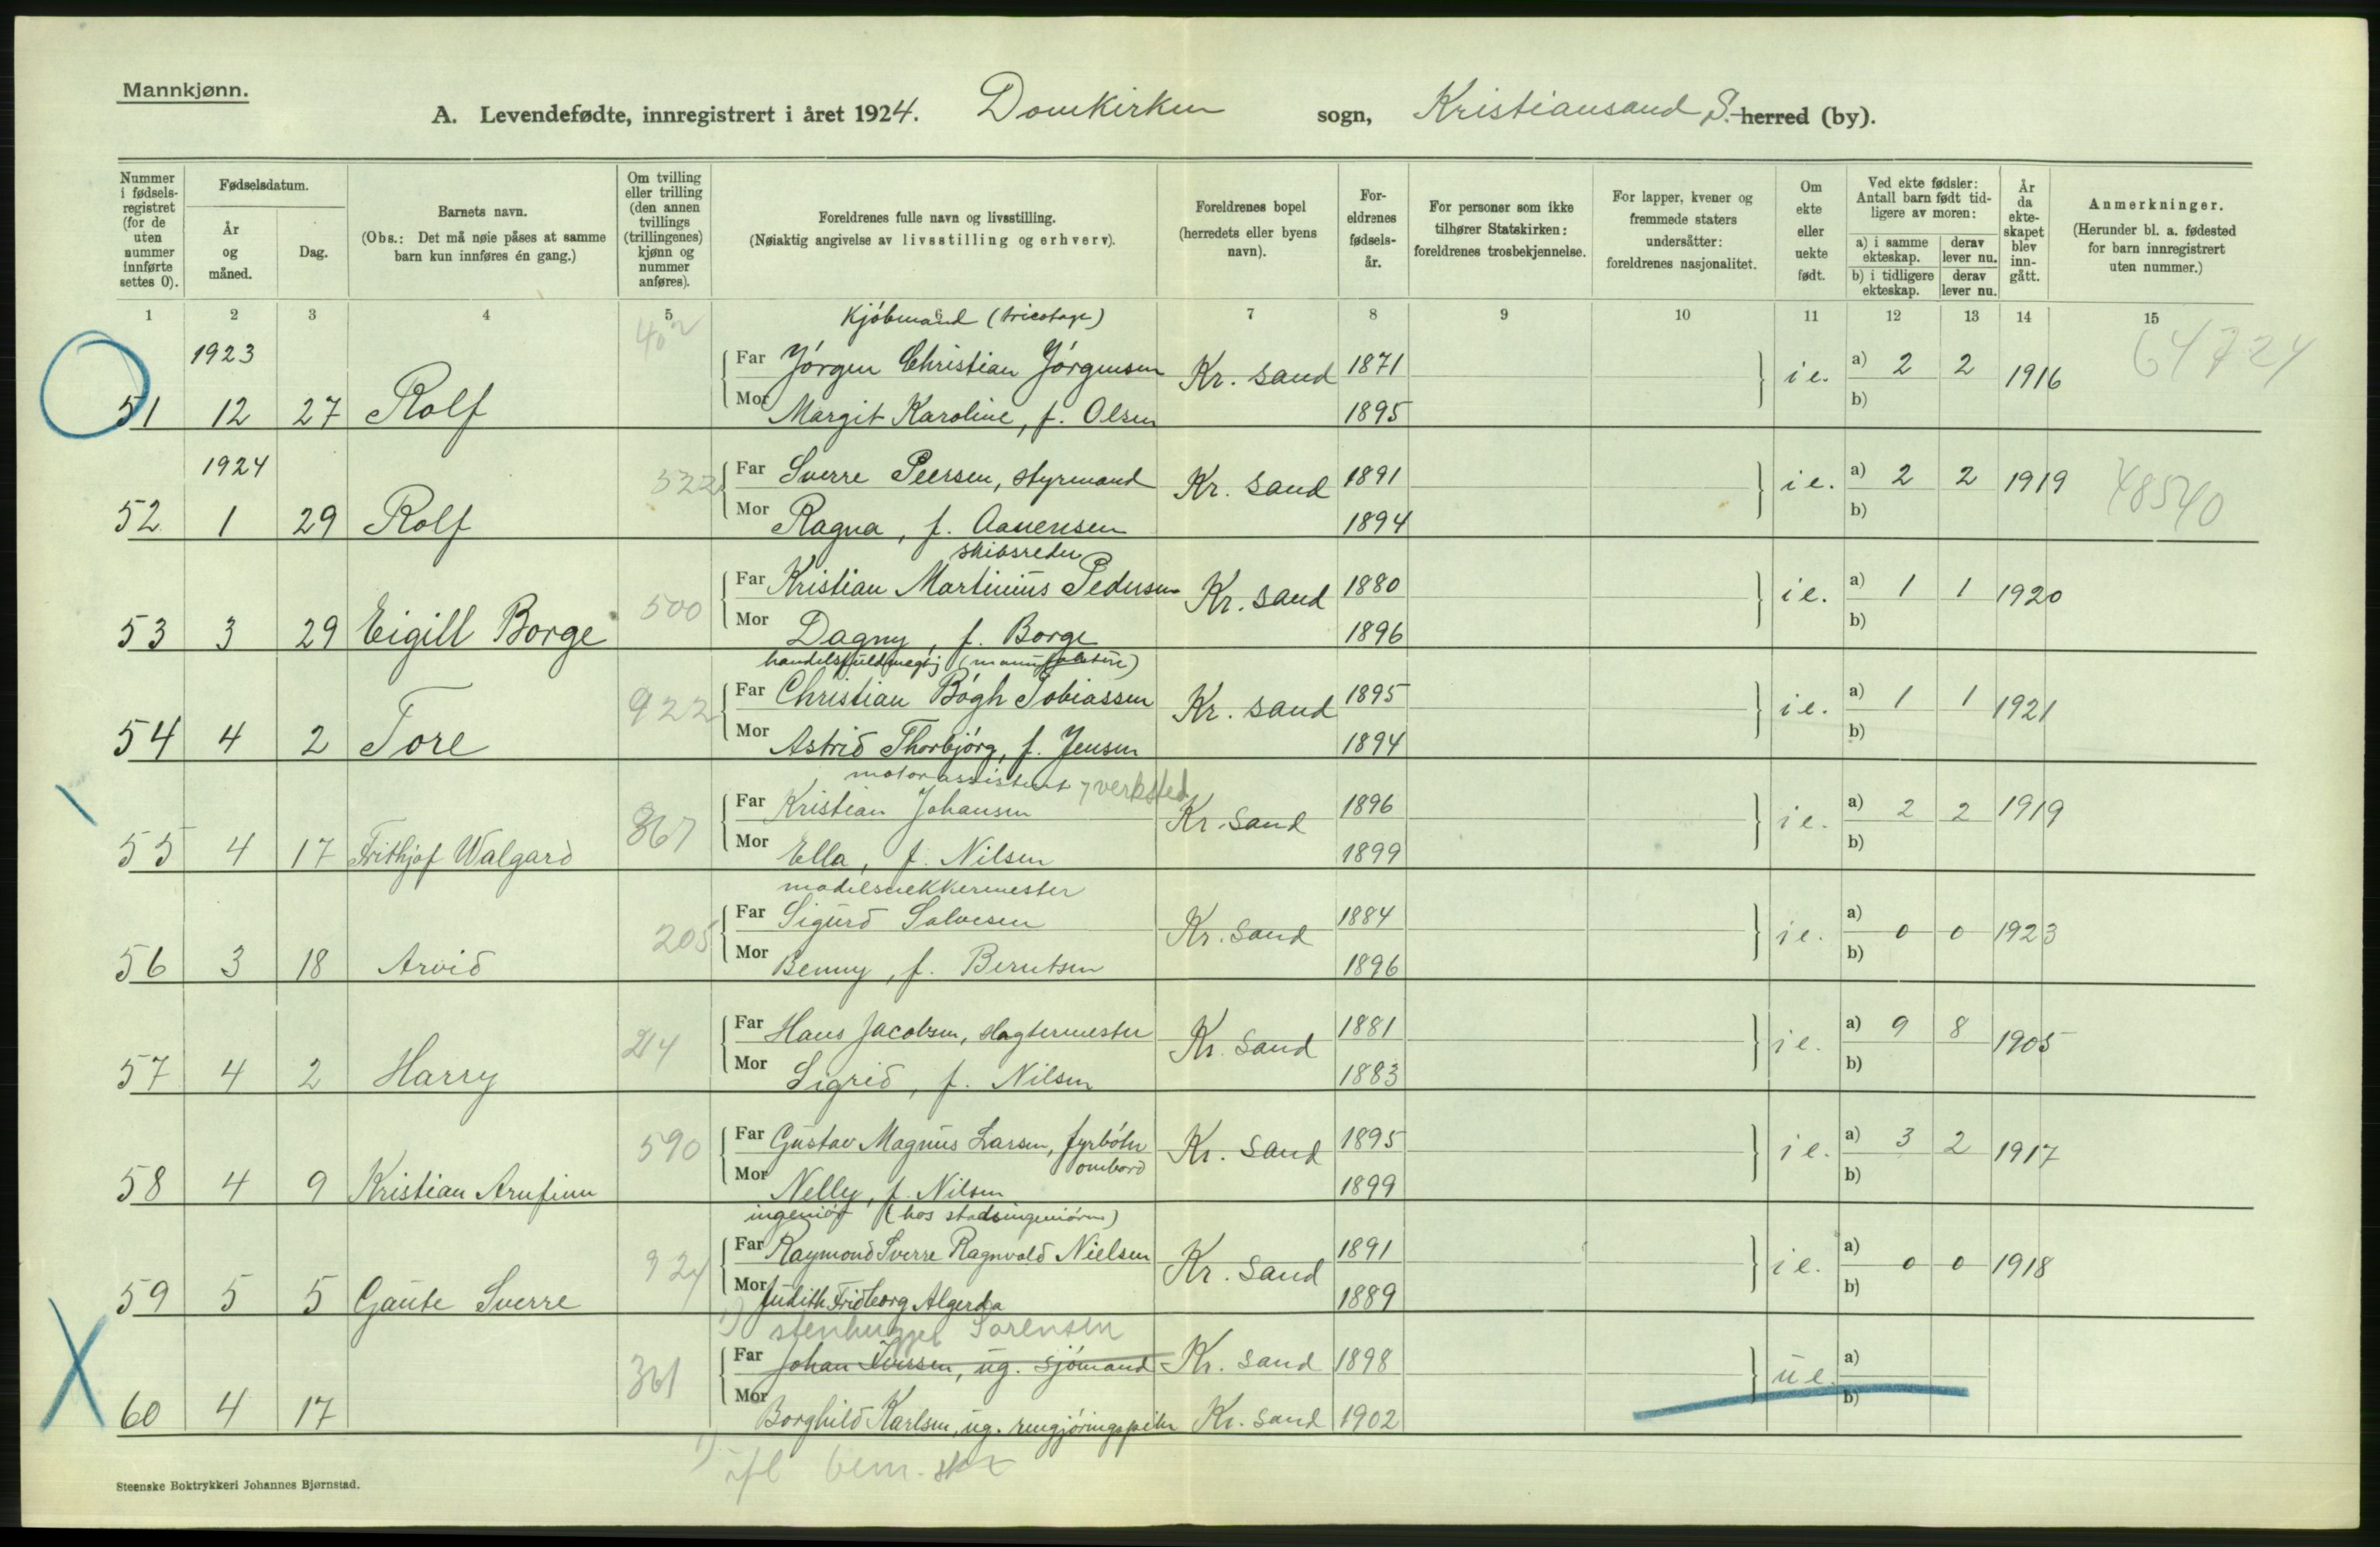 Mannkjønn.
A. Levendefødte, innregistrert i året 1924. Domkirken sogn, Kristiansand S. herred (by).
Nummer i fødsels-registret (for de uten nummer innførte settes 0).
Fødselsdatum.
År og måned.
Dag.
Barnets navn.
(Obs.: Det må nøie påses at samme barn kun innføres én gang.)
Om tvilling eller trilling (den annen tvillings (trillingenes) kjønn og nummer anføres).
Foreldrenes fulle navn og livsstilling.
(Nøiaktig angivelse av livsstilling og erhverv).
Foreldrenes bopel (herredets eller byens navn).
For-eldrenes fødsels-år.
For personer som ikke tilhører Statskirken: foreldrenes trosbekjennelse.
For lapper, kvener og fremmede staters undersåtter: foreldrenes nasjonalitet.
Om ekte eller uekte født.
Ved ekte fødsler: Antall barn født tid-ligere av moren:
a) i samme ekteskap. derav lever nu.
b) i tidligere ekteskap. derav lever nu.
År da ekte-skapet blev inn-gått.
Anmerkninger.
(Herunder bl. a. fødested for barn innregistrert uten nummer.)
1 2 3 4 5 6 7 8 9 10 11 12 13 14 15
Kjöbmand (tricotage)
1923 402 64724
Far Jörgen Christian Jörgensen Kr. sand 1871 i e. a) 2 2 1916
51 12 27 Rolf Mor Margit Karoline, f. Olsen 1895 b)
1924
Far Sverre Peersen, styrmand Kr. sand 1891 i e. a) 2 2 1919 48540
52 1 29 Rolf 322 Mor Ragna, f. Aanensen 1894 b)
skibsreder
Far Kristian Martinius Pedersen Kr. sand 1880 i e. a) 1 1 1920
53 3 29 Eigill Borge 500 Mor Dagny, f. Borge 1896 b)
handelsfuldmegtig (manufaktur)
Far Christian Bögh Tobiassen Kr. sand 1895 i e. a) 1 1 1921
54 4 2 Tore 922 Mor Astrid Thorbjörg, f. Jensen 1894 b)
motorassistent verksted
Far Kristian Johansen Kr. sand 1896 i e. a) 2 2 1919
55 4 17 Frithjof Walgard 367 Mor Ella, f. Nilsen 1899 b)
modelsnekkermester
Far Sigurd Salvesen Kr. sand 1884 i e. a) 0 0 1923
56 3 18 Arvid 205 Mor Benny, f. Berntsen 1896 b)
Far Hans Jacobsen, slagtermester Kr. sand 1881 i e. a) 9 8 1905
57 4 2 Harry 214 Mor Sigrid, f. Nilsen 1883 b)
Far Gustav Magnus Larsen, fyrböter ombord Kr. sand 1895 i e. a) 3 2 1917
58 4 9 Kristian Arnfinn 590 Mor Nelly, f. Nilsen 1899 b)
ingeniör (hos stadsingeniören)
Far Raymond Sverre Ragnvald Nielsen Kr. sand 1891 i e. a) 0 0 1918
59 5 5 Gaute Sverre 924 Mor Judith Fridborg Algerda 1889 b)
1) stenhugger Sorensen
Far Johan Iversen, ug. sjömand Kr. sand 1898 u e. a)
60 4 17 361 Mor Borghild Karlsen, ug. rengjöringspike Kr. sand 1902 b)
1) ifl bem.
Steenske Boktrykkeri Johannes Bjørnstad.